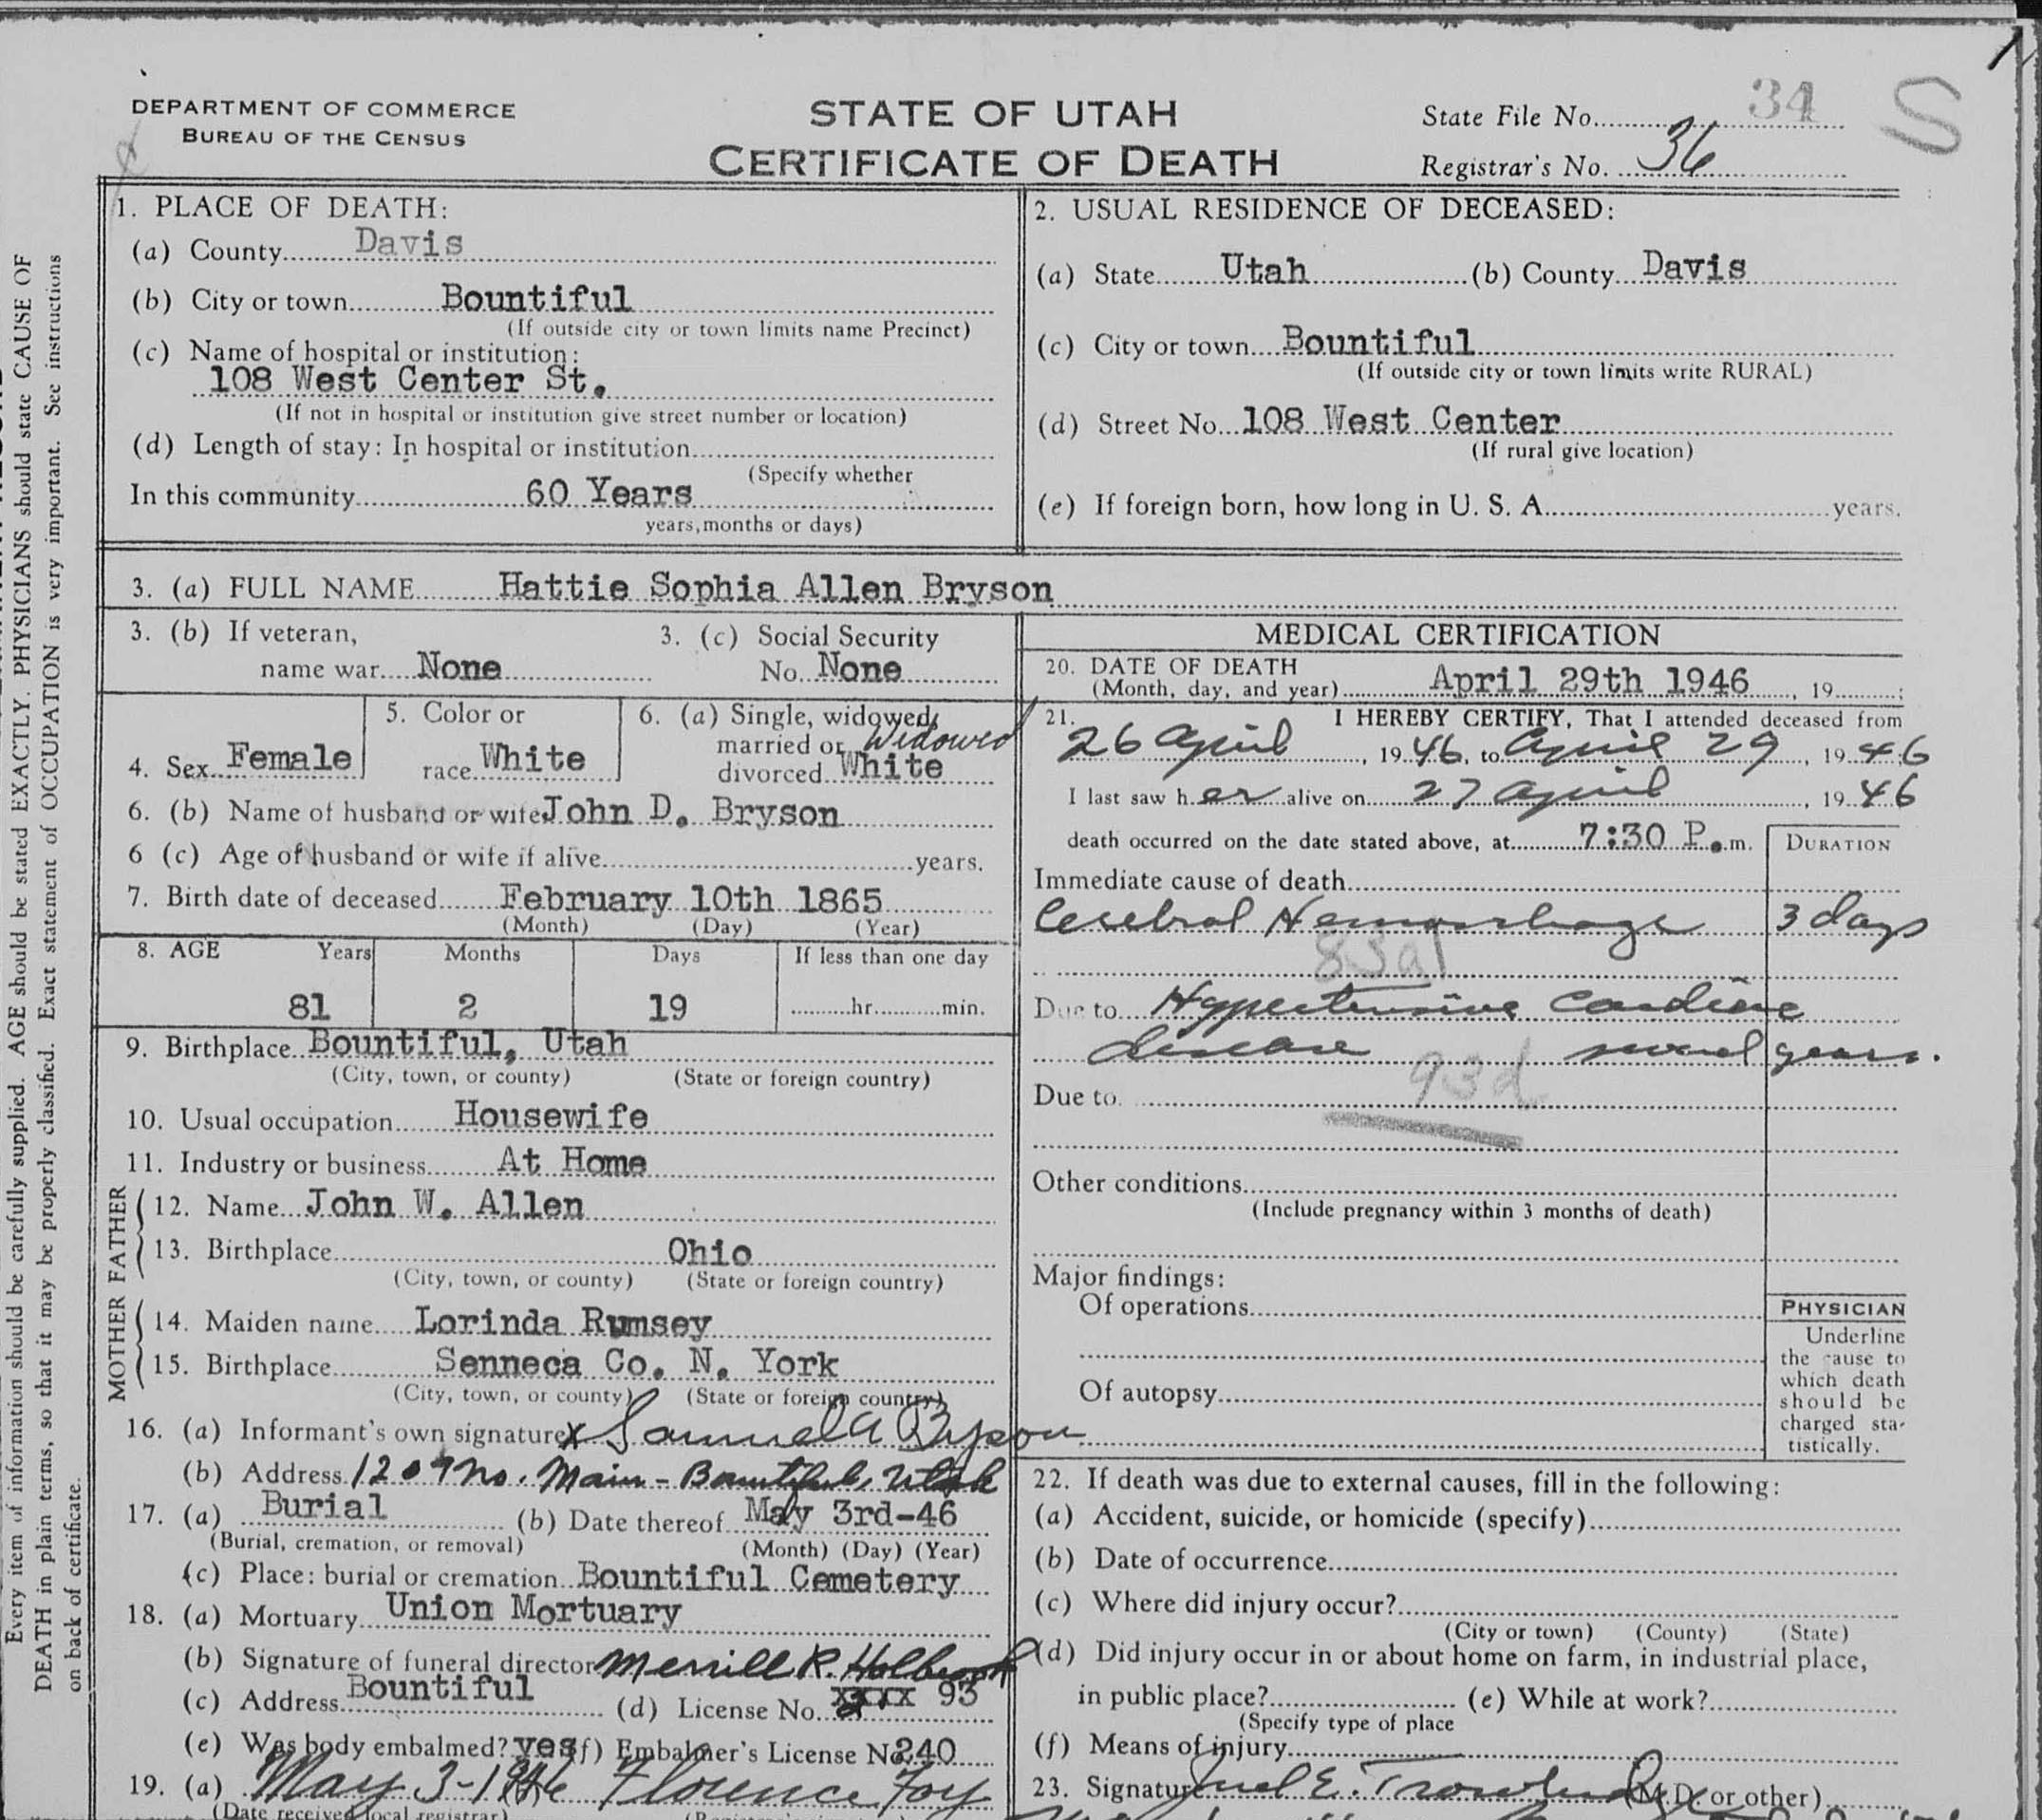 DEPARTMENT OF COMMERCE
BUREAU OF THE CENSUS
STATE OF UTAH
CERTIFICATE OF DEATH
State File No. 34
Registrar's No. 36
S
Every item of information should be carefully supplied. AGE should be stated EXACTLY. PHYSICIANS should state CAUSE OF
DEATH in plain terms, so that it may be properly classified. Exact statement of OCCUPATION is very important. See instructions
on back of certificate.
1. PLACE OF DEATH:
(a) County Davis
(b) City or town Bountiful
(If outside city or town limits name Precinct)
(c) Name of hospital or institution:
108 West Center St.
(If not in hospital or institution give street number or location)
(d) Length of stay: In hospital or institution
(Specify whether
In this community 60 Years
years, months or days)
2. USUAL RESIDENCE OF DECEASED:
(a) State Utah (b) County Davis
(c) City or town Bountiful
(If outside city or town limits write RURAL)
(d) Street No. 108 West Center
(If rural give location)
(e) If foreign born, how long in U. S. A. years.
3. (a) FULL NAME Hattie Sophia Allen Bryson
3. (b) If veteran,
name war None
3. (c) Social Security
No. None
4. Sex Female
5. Color or
race White
6. (a) Single, widowed,
married or Widowed
divorced White
6. (b) Name of husband or wife John D. Bryson
6 (c) Age of husband or wife if alive years.
7. Birth date of deceased February 10th 1865
(Month) (Day) (Year)
8. AGE Years Months Days If less than one day
81 2 19 hr. min.
9. Birthplace Bountiful, Utah
(City, town, or county) (State or foreign country)
10. Usual occupation Housewife
11. Industry or business At Home
FATHER
12. Name John W. Allen
13. Birthplace Ohio
(City, town, or county) (State or foreign country)
MOTHER
14. Maiden name Lorinda Rumsey
15. Birthplace Senneca Co. N. York
(City, town, or county) (State or foreign country)
16. (a) Informant's own signature X Samuel A Bryson
(b) Address 1209 No. Main - Bountiful, Utah
17. (a) Burial (b) Date thereof May 3rd-46
(Burial, cremation, or removal) (Month) (Day) (Year)
(c) Place: burial or cremation Bountiful Cemetery
18. (a) Mortuary Union Mortuary
(b) Signature of funeral director Merrill R. Holbrook
(c) Address Bountiful (d) License No. xxxx 93
(e) Was body embalmed? yes (f) Embalmer's License No. 240
19. (a) May 3-1946 Florence Foy
(Date received local registrar)
MEDICAL CERTIFICATION
20. DATE OF DEATH
(Month, day, and year) April 29th 1946, 19 ;
21. I HEREBY CERTIFY, That I attended deceased from
26 April, 1946, to April 29, 1946
I last saw her alive on 27 April, 1946
death occurred on the date stated above, at 7:30 P.m.
DURATION
Immediate cause of death
Cerebral Hemorrhage 3 days
83a1
Due to Hypertensive Cardiac
disease several years.
93d
Due to
Other conditions
(Include pregnancy within 3 months of death)
Major findings:
Of operations
Of autopsy
PHYSICIAN
Underline
the cause to
which death
should be
charged sta-
tistically.
22. If death was due to external causes, fill in the following:
(a) Accident, suicide, or homicide (specify)
(b) Date of occurrence
(c) Where did injury occur?
(City or town) (County) (State)
(d) Did injury occur in or about home on farm, in industrial place,
in public place? (e) While at work?
(Specify type of place
(f) Means of injury
23. Signature E. (M.D. or other)